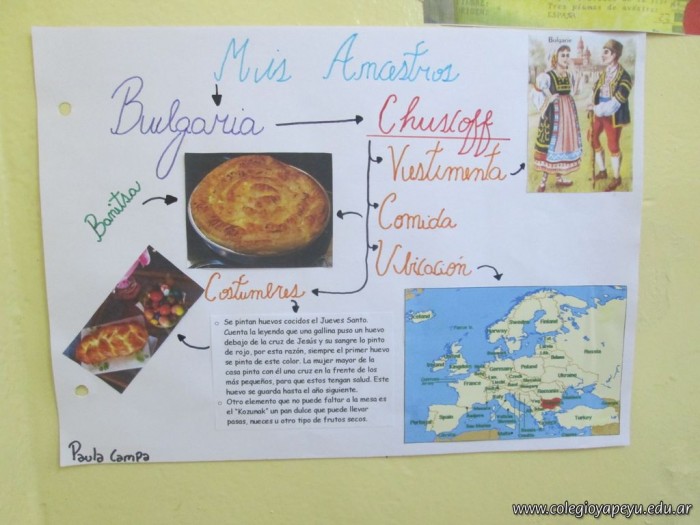 Mis Ancestros
Bulgaria
Chuscoff
Bulgarie
Vestimenta
Comida
Ubicación
Banitsa
Costumbres
o Se pintan huevos cocidos el Jueves Santo.
Cuenta la leyenda que una gallina puso un huevo
debajo de la cruz de Jesús y su sangre lo pinto
de rojo, por esta razón, siempre el primer huevo
se pinta de este color. La mujer mayor de la
casa pinta con él una cruz en la frente de los
más pequeños, para que estos tengan salud. Este
huevo se guarda hasta el año siguiente.
o Otro elemento que no puede faltar a la mesa es
el "Kozunak" un pan dulce que puede llevar
pasas, nueces u otro tipo de frutos secos.
Iceland
Norway
Sweden
Finland
Russia
England
Germany
Poland
Ukraine
France
Romania
Italy
Spain
Portugal
Turkey
Paula Campa
www.colegioyapeyu.edu.ar